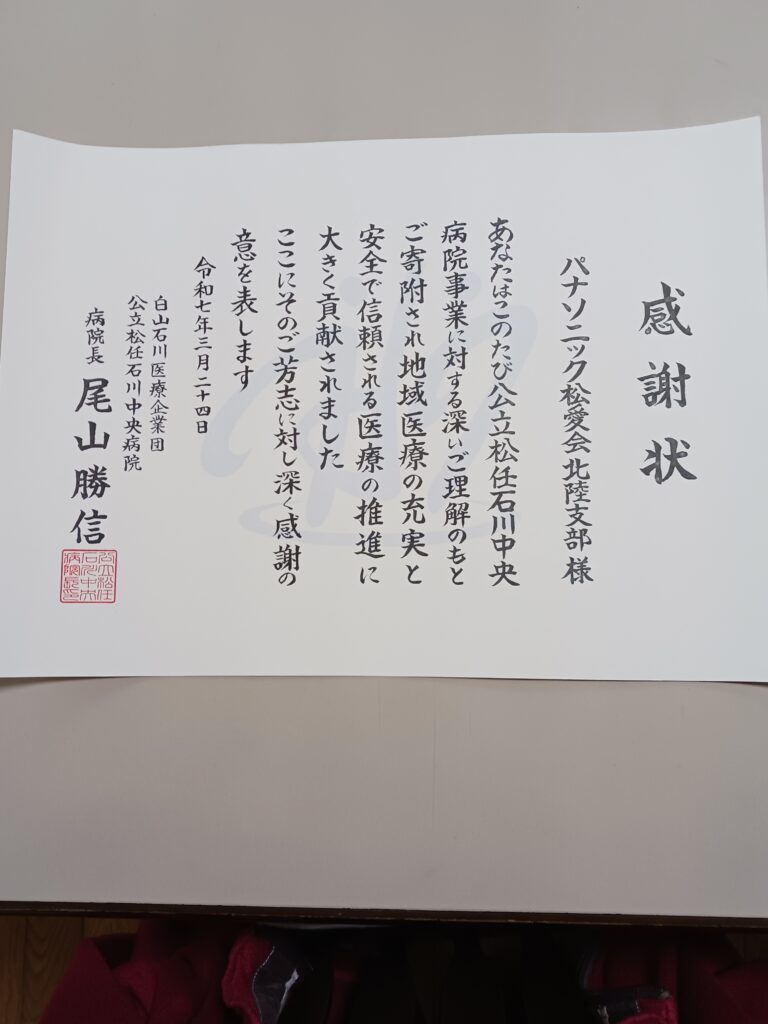 感謝状
パナソニック松愛会北陸支部様
あなたはこのたび公立松任石川中央
病院事業に対する深いご理解のもと
ご寄附され地域医療の充実と
安全で信頼される医療の推進に
大きく貢献されました
ここにそのご芳志に対し深く感謝の
意を表します
令和七年三月二十四日
白山石川医療企業団
公立松任石川中央病院
病院長 尾山勝信
公立松任
石川中央
病院長印